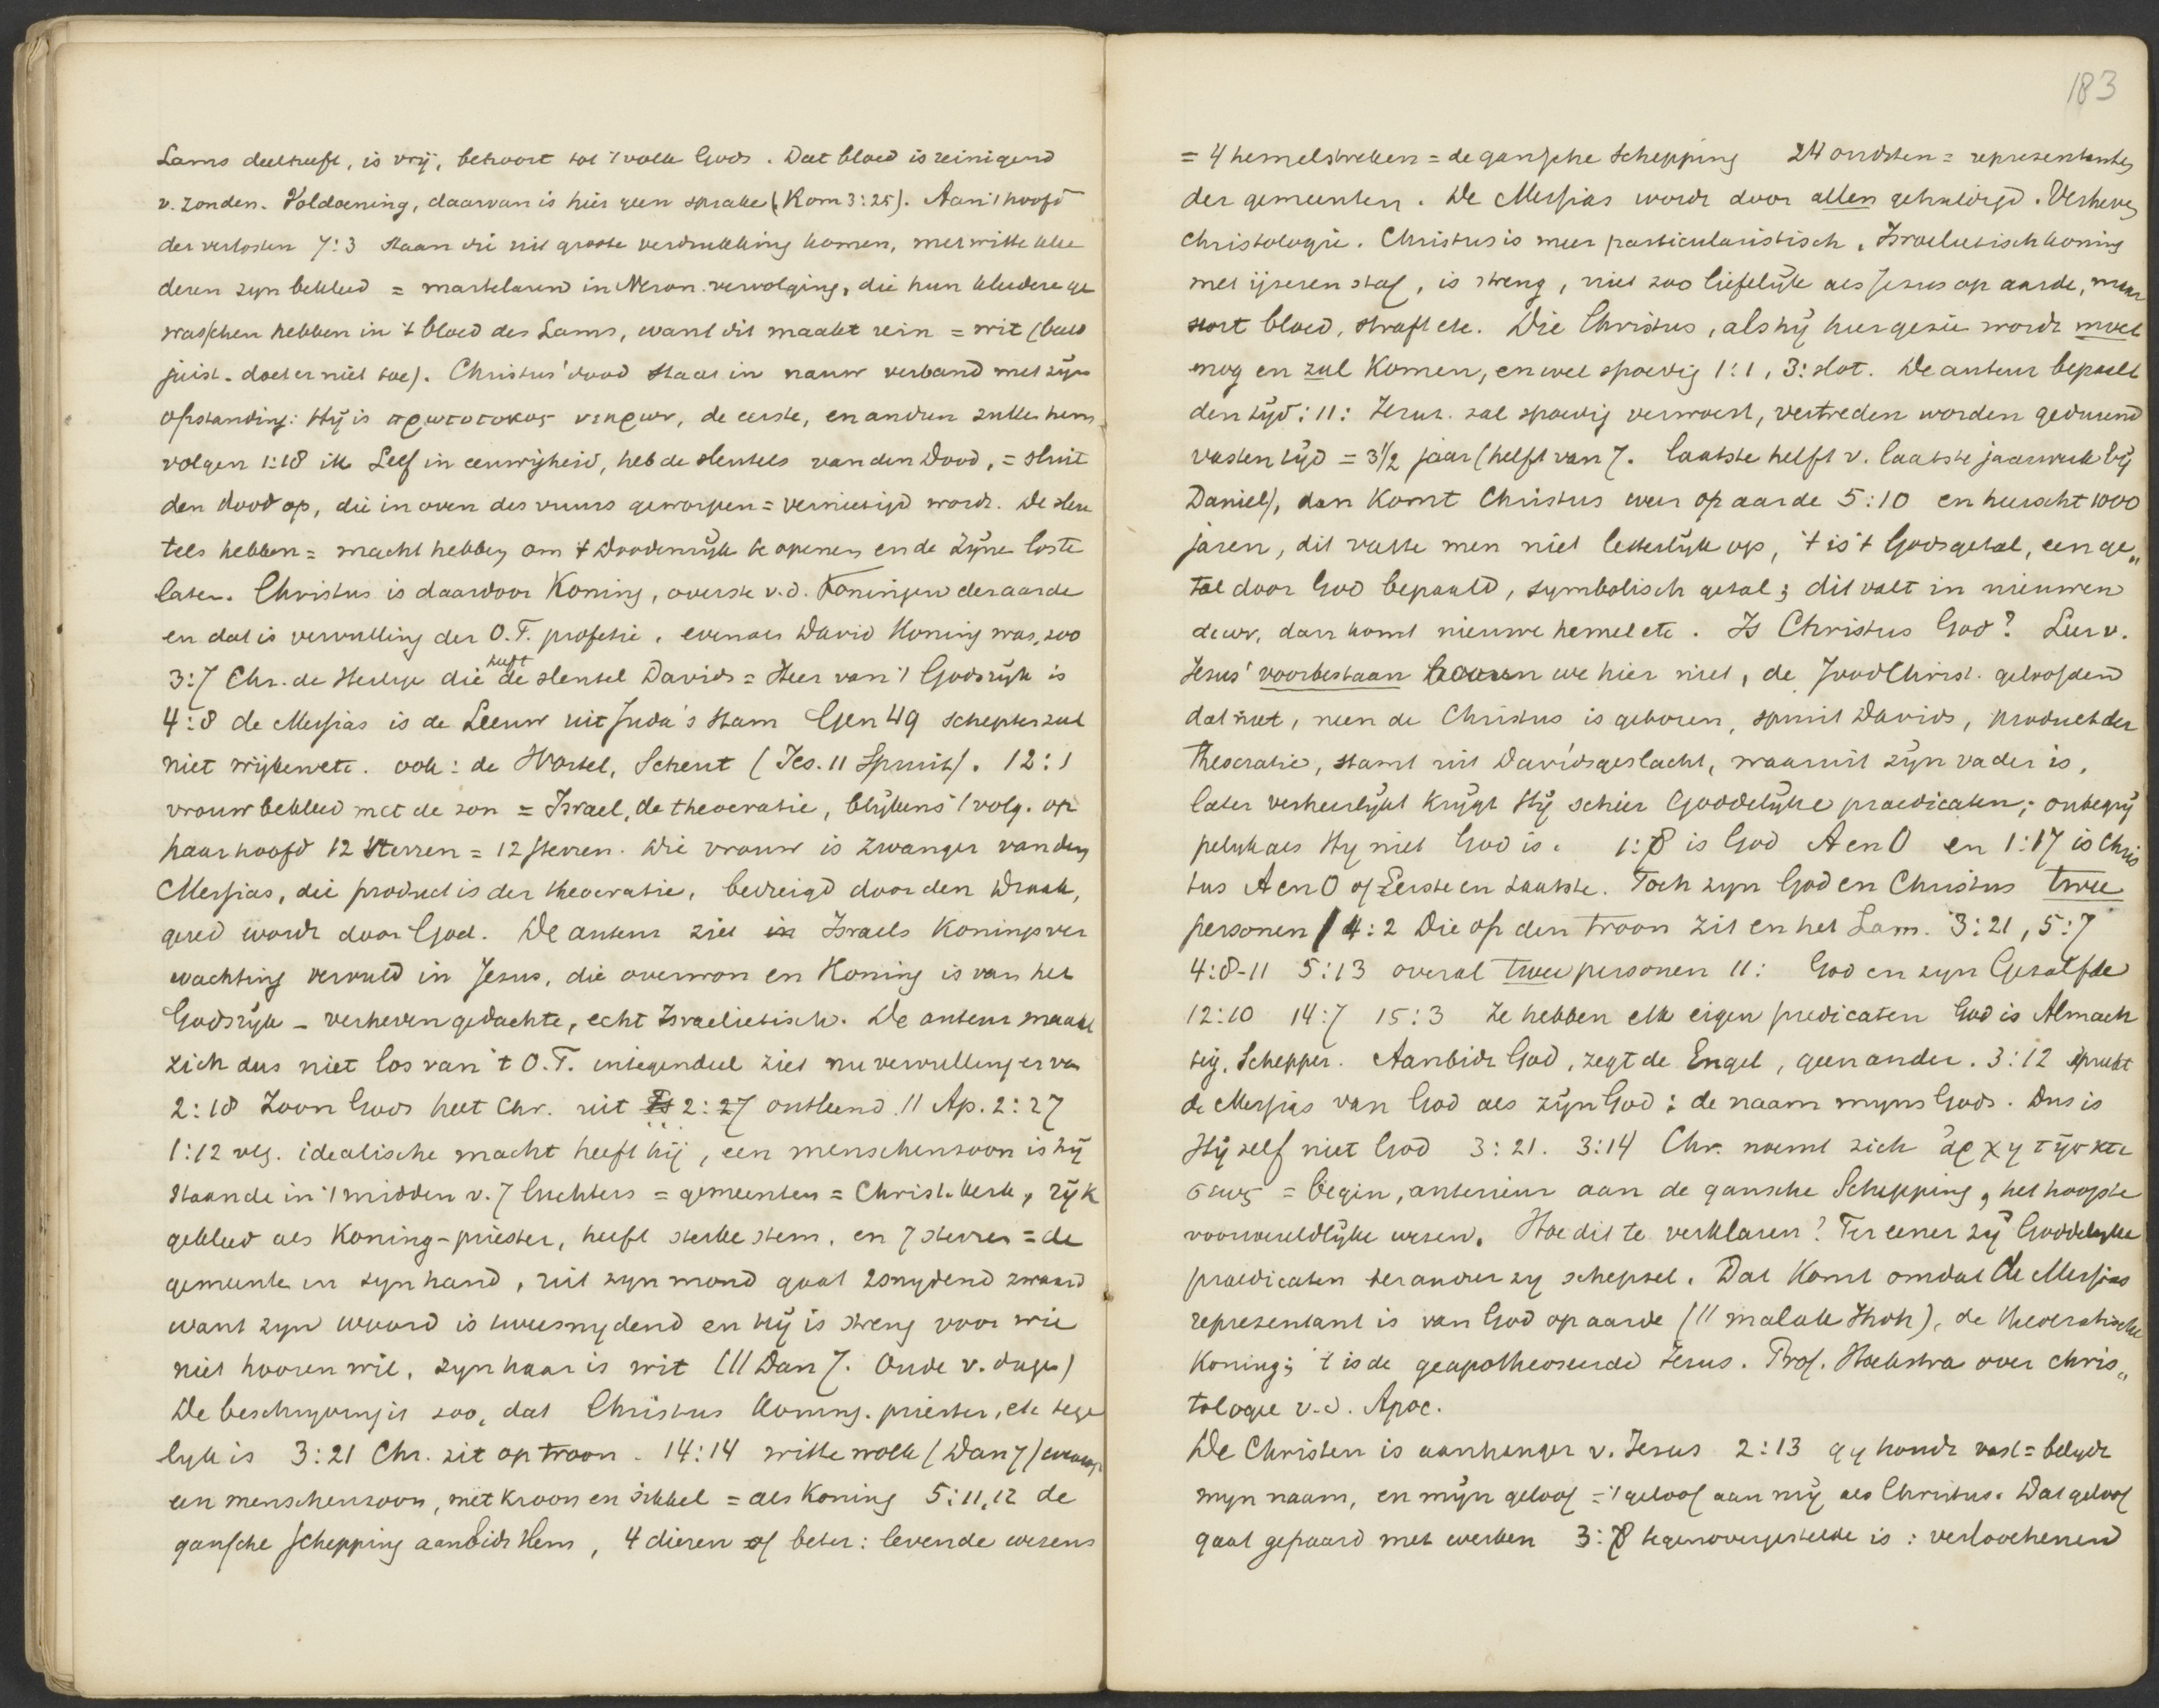 Lams deelheeft, is vrij, behoort tot 't volk Gods. Dat bloed is reinigend
v. zonden. Voldoening, daarvan is hier geen sprake (Rom 3:25). Aan 't hoofd
der verlosten 7:3 staan die uit groote verdrukking komen, met witte klee
deren zyn bekleed = martelaren in Neron. vervolging, die hun kleedere ge
wasschen hebben in 't bloed des Lams, want dit maakt rein = wit (beeld
juist. doet er niet toe). Christus' dood staat in nauw verband met zijn
opstanding: Hij is πρωτοτοκος νεκρων, de eerste, en andren zullen hem
volgen 1:18 ik Leef in eeuwigheid, heb de sleutels van den Dood, = sluit
den dood op, die in oven des vuurs geworpen = vernietigd wordt. De sleu
tels hebben = macht hebben om 't Doodenrijk te openen en de Zijne los te
laten. Christus is daardoor Koning, overste v.d. Koningen der aarde
en dat is vervulling der O.T. profetie, evenals David Koning was, zoo
3:7 Chr. de Heilige die heeft de sleutel Davids = Heer van 't Godsrijk is
4:8 de Messias is de Leeuw uit Juda's stam Gen 49 schepter zal
niet wijken etc. ook: de Wortel, Scheut (Jes. 11 Spruit). 12:1
vrouw bekleed met de zon = Israel, de theocratie, blijkens 't volg. op
haar hoofd 12 sterren = 12 stammen. Die vrouw is zwanger van den
Messias, die product is der theocratie, bedreigd door den Draak,
gered wordt door God. De auteur ziet in Israels Koningsver
wachting vervuld in Jesus, die overwon en Koning is van het
Godsrijk - verheven gedachte, echt Israelietisch. De auteur maakt
zich dus niet los van 't O.T. integendeel ziet nu vervulling er van
2:18 Zoon Gods heet Chr. uit Ps 2:27 ontleend // Ap. 2:27
1:12 vlg. idealische macht heeft hij, een menschenzoon is hij
staande in 't midden v. 7 luchters = gemeenten = Christ. kerk, rijk
gekleed als Koning-priester, heeft sterke stem, en 7 sterren = de
gemeente in zyn hand, uit zyn mond gaat 2snydend zwaard
want zyn woord is tweesnydend en hij is streng voor wie
niet hooren wil, zyn haar is wit (// Dan 7. Oude v. dagen)
De beschrijving is zoo, dat Christus Koning. priester, etc tege
lyk is 3:21 Chr. zit op troon. 14:14 witte wolk (Dan 7)
een menschenzoon, met kroon en sikkel = als Koning 5:11,12 de
gansche schepping aanbidt Hem, 4 dieren of beter: levende wezens
183
= 4 hemelstreken = de gansche schepping 24 oudsten = representanten
der gemeenten. De Messias wordt door allen gehuldigd. Verheven
Christologie. Christus is meer particularistisch, Israelietisch koning
met ijzeren staf, is streng, niet zoo liefelijk als Jesus op aarde, maar
stort bloed, straft etc. Die Christus, als hij hier gezien wordt moet
nog en zal Komen, en wel spoedig 1:1, 3: slot. De auteur bepaalt
den tijd: 11: Jerus. zal spoedig verwoest, vertreden worden gedurend
vasten tijd = 3 1/2 jaar (helft van 7. laatste helft v. laatste jaarweek bij
Daniel), dan Komt Christus weer op aarde 5:10 en heerscht 1000
jaren, dit vatte men niet letterlijk op, 't is 't Godsgetal, een ge„
tal door God bepaald, symbolisch getal; dit valt in nieuwen
aeuw, dan komt nieuwe hemel etc. Is Christus God? Leer v.
Jesus' voorbestaan hooren we hier niet, de JoodChrist. geloofden
dat niet, neen de Christus is geboren, spruit Davids, product der
theocratie, stamt uit Davidsgeslacht, waaruit zijn vader is,
later verheerlijkt krijgt Hij schier Goddelijke praedicaten; onbegrij
pelyk als Hy niet God is. 1:8 is God A en O en 1:17 is Chris
tus A en O of Eerste en Laatste. Toch zyn God en Christus twee
personen 4:2 Die op den troon zit en het Lam. 3:21, 5:7
4:8-11 5:13 overal twee personen 11: God en zyn Gezalfde
12:10 14:7 15:3 Ze hebben elk eigen predicaten God is Almach
tig, Schepper. Aanbidt God, zegt de Engel, geen ander. 3:12 spreekt
de Messias van God als zijn God: de naam myns Gods. Dus is
Hij zelf niet God 3:21. 3:14 Chr. noemt zich ἀρχη τῆς κτι
σεως = begin, anterieur aan de gansche Schepping, het hoogste
voorwereldlijke wezen. Hoe dit te verklaren? Ter eener zij Goddelyke
praedicaten ter ander zy schepsel. Dat Komt omdat de Messias
representant is van God op aarde (// malak Jhvh), de theocratische
Koning; 't is de geapotheoseerde Jesus. Prof. Hoekstra over chris„
tologie v.d. Apoc.
De Christen is aanhanger v. Jesus 2:13 gy houdt vast = belydt
myn naam, en mijn geloof = 't geloof aan mij als Christus. Dat geloof
gaat gepaard met werken 3:8 tegenovergestelde is: verloochenend